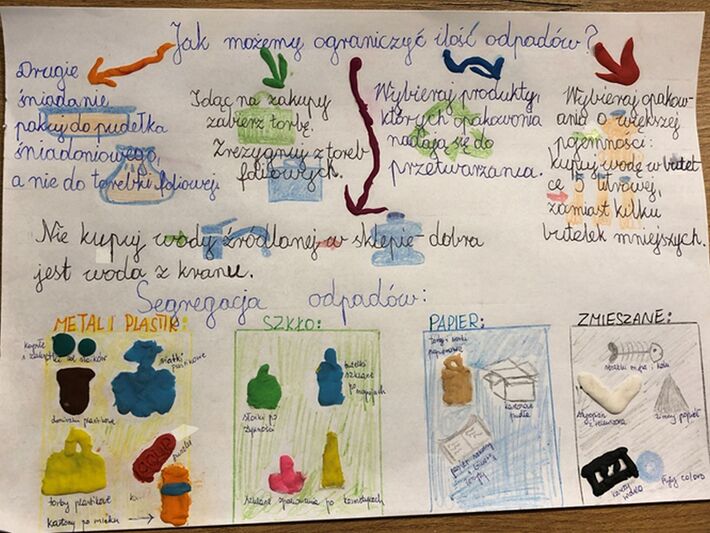 Jak możemy ograniczyć ilość odpadów?
Drugie
śniadanie
pakuj do pudełka
śniadaniowego,
a nie do torebki foliowej.
Idąc na zakupy
zabierz torbę.
Zrezygnuj z toreb
foliowych.
Wybieraj produkty,
których opakowania
nadają się do
przetwarzania.
Wybieraj opakow-
ania o większej
pojemności:
kupuj wodę w butel
ce 5 litrowej,
zamiast kilku
butelek mniejszych.
Nie kupuj wody źródlanej w sklepie - dobra
jest woda z kranu.
Segregacja odpadów:
METAL I PLASTIK:
siatki
plastikowe
doniczki plastikowe
puszki
torby plastikowe
kartony po mleku
SZKŁO:
butelki
szklane
po napojach
słoiki po
żywności
szklane opakowania po kosmetykach
PAPIER:
torby i worki
papierowe
kartonowe
pudła
ZMIESZANE:
resztki mięsa i kości
zimny popiół
kasety
wideo